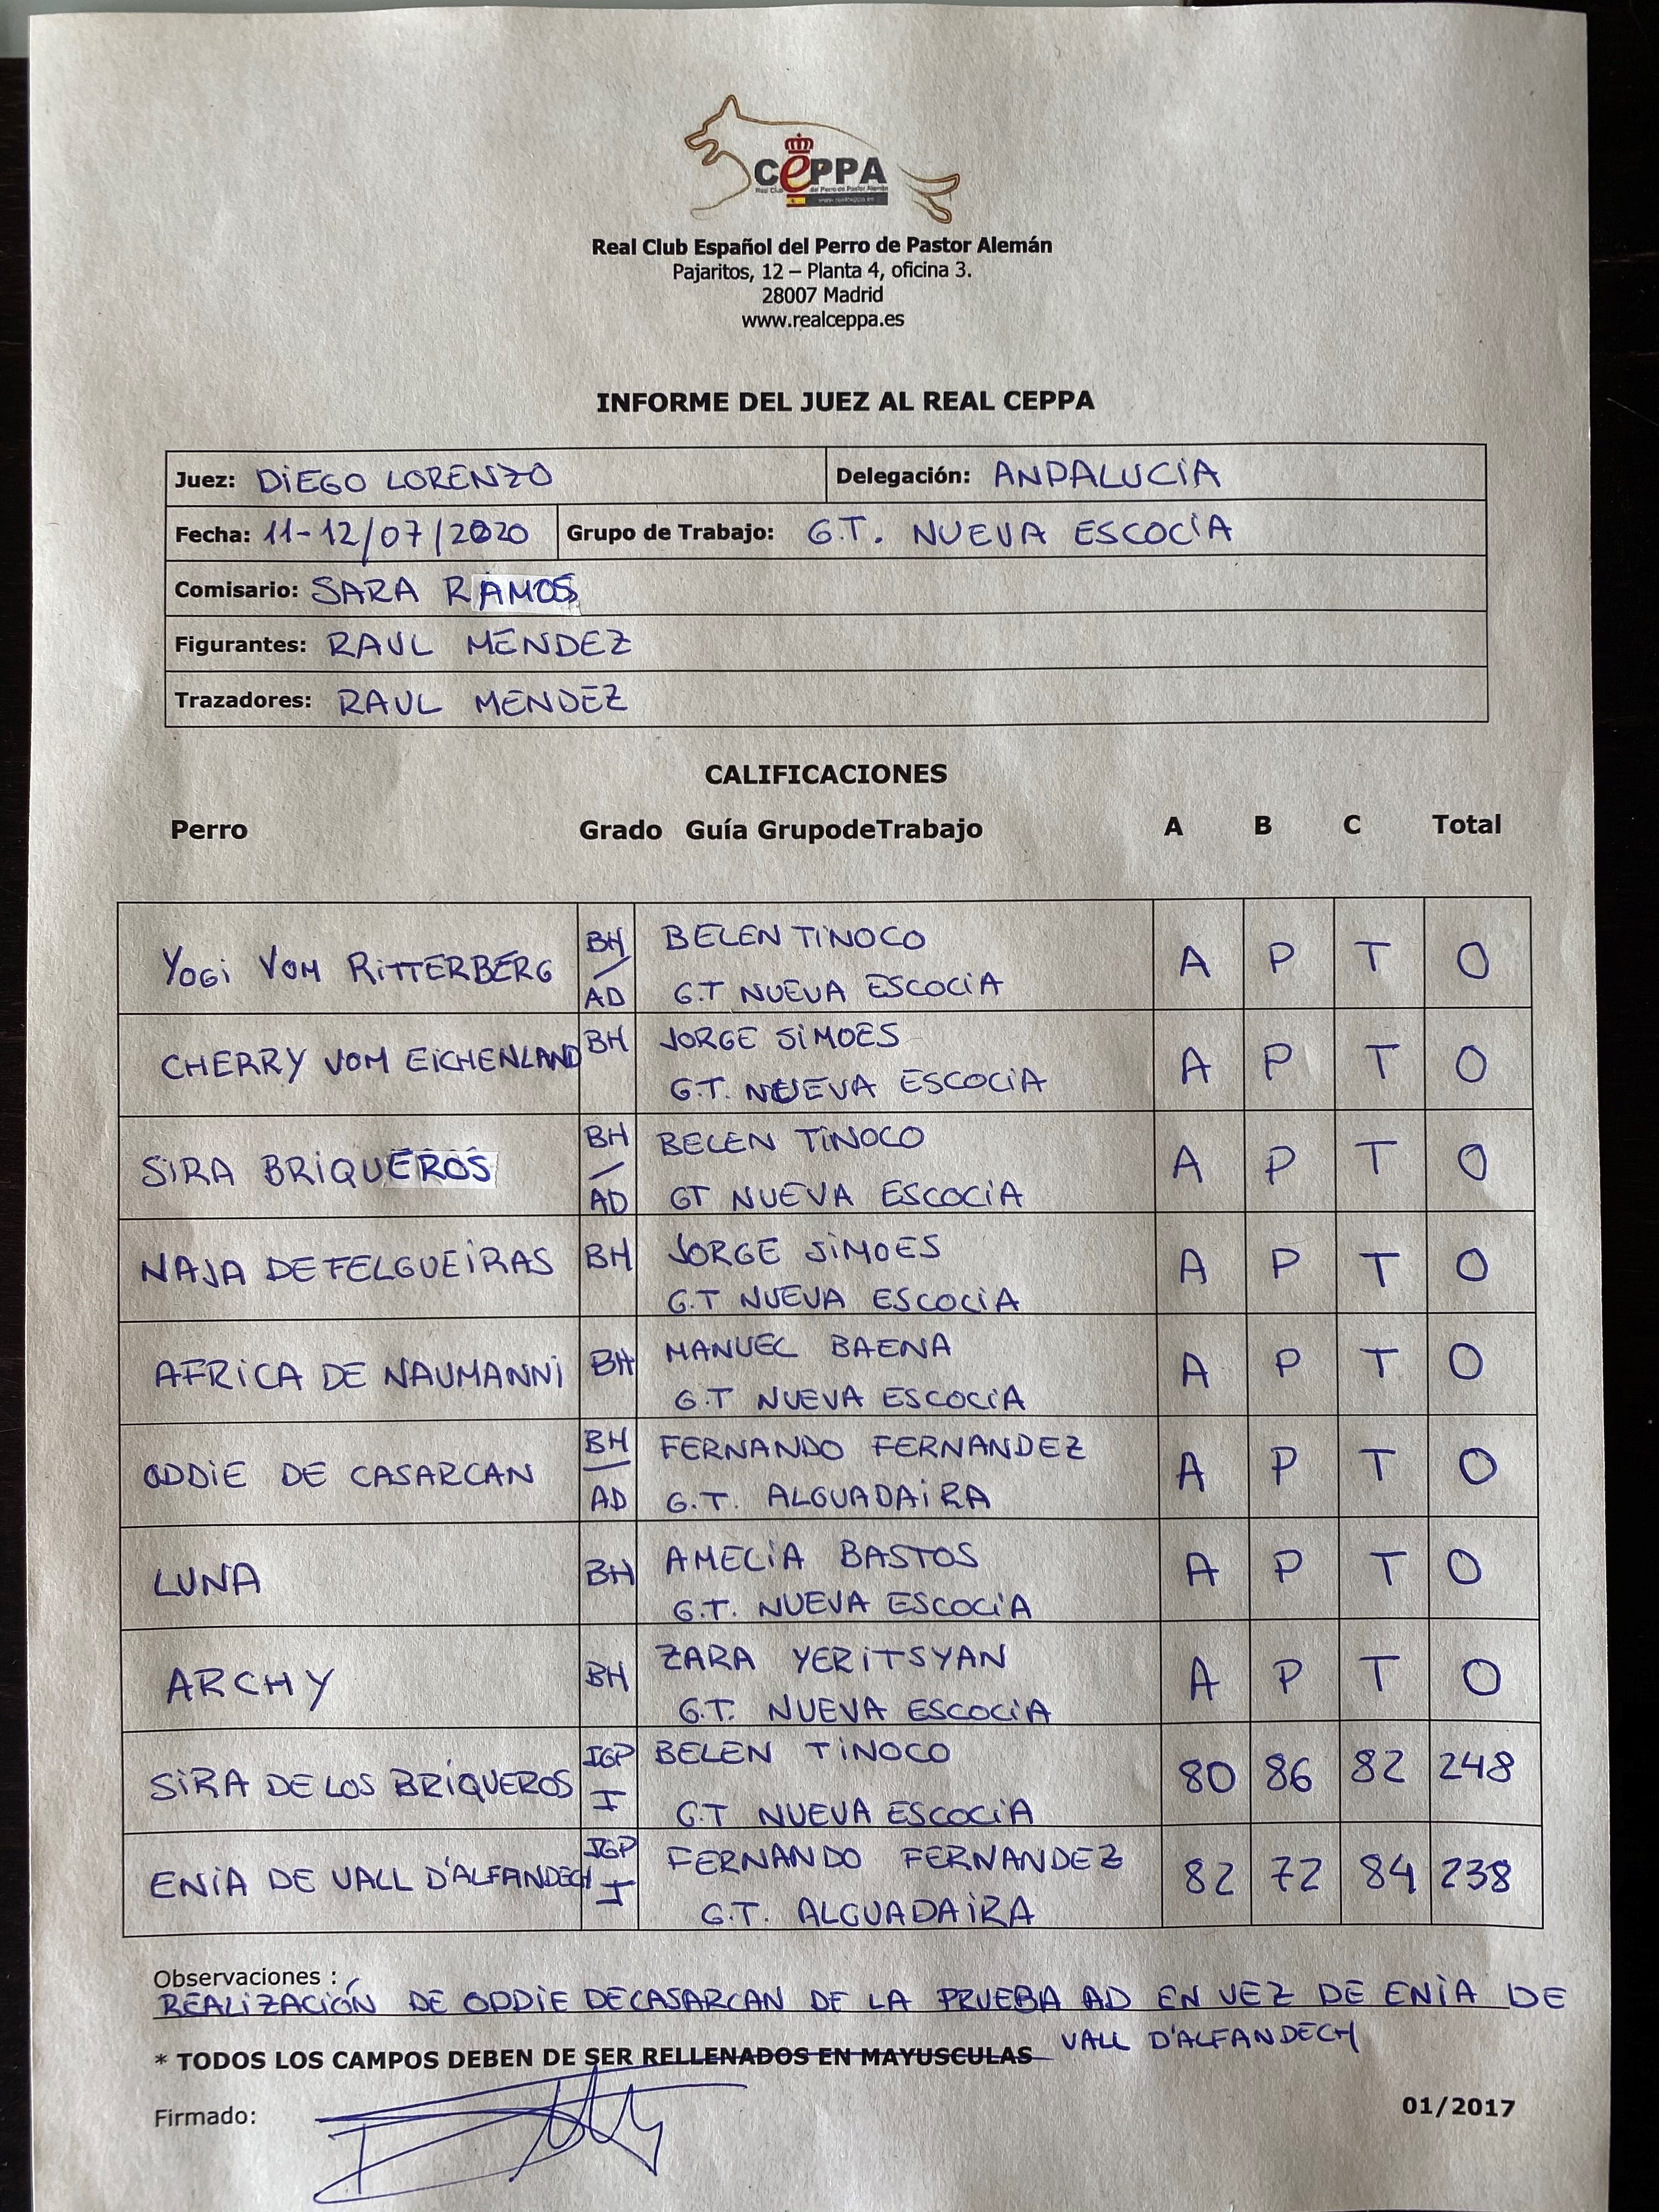 CePPA
Real Club del Perro de Pastor Alemán
www.realceppa.es
Real Club Español del Perro de Pastor Alemán
Pajaritos, 12 – Planta 4, oficina 3.
28007 Madrid
www.realceppa.es
INFORME DEL JUEZ AL REAL CEPPA
Juez: DIEGO LORENZO Delegación: ANDALUCIA
Fecha: 11-12/07/2020 Grupo de Trabajo: G.T. NUEVA ESCOCIA
Comisario: SARA RAMOS
Figurantes: RAUL MENDEZ
Trazadores: RAUL MENDEZ
CALIFICACIONES
Perro Grado Guía GrupodeTrabajo A B C Total
YOGI VOM RITTERBERG BH/AD BELEN TINOCO A P T O
G.T NUEVA ESCOCIA
CHERRY VOM EICHENLAND BH JORGE SIMOES A P T O
G.T. NUEVA ESCOCIA
SIRA BRIQUEROS BH/AD BELEN TINOCO A P T O
GT NUEVA ESCOCIA
NAJA DE FELGUEIRAS BH JORGE SIMOES A P T O
G.T NUEVA ESCOCIA
AFRICA DE NAUMANNI BH MANUEL BAENA A P T O
G.T NUEVA ESCOCIA
ODDIE DE CASARCAN BH/AD FERNANDO FERNANDEZ A P T O
G.T. ALGUADAIRA
LUNA BH AMELIA BASTOS A P T O
G.T. NUEVA ESCOCIA
ARCHY BH ZARA YERITSYAN A P T O
G.T. NUEVA ESCOCIA
SIRA DE LOS BRIQUEROS IGP I BELEN TINOCO 80 86 82 248
G.T NUEVA ESCOCIA
ENIA DE VALL D'ALFANDECH IGP I FERNANDO FERNANDEZ 82 72 84 238
G.T. ALGUADAIRA
Observaciones :
REALIZACIÓN DE ODDIE DE CASARCAN DE LA PRUEBA AD EN VEZ DE ENIA DE
VALL D'ALFANDECH
* TODOS LOS CAMPOS DEBEN DE SER RELLENADOS EN MAYUSCULAS
Firmado:
01/2017